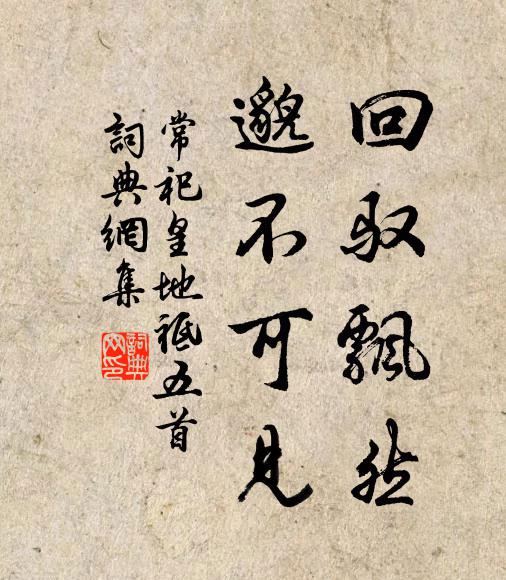 回驭飘然
邈不可见
常祀皇地祇五首
词典网集
词典网印